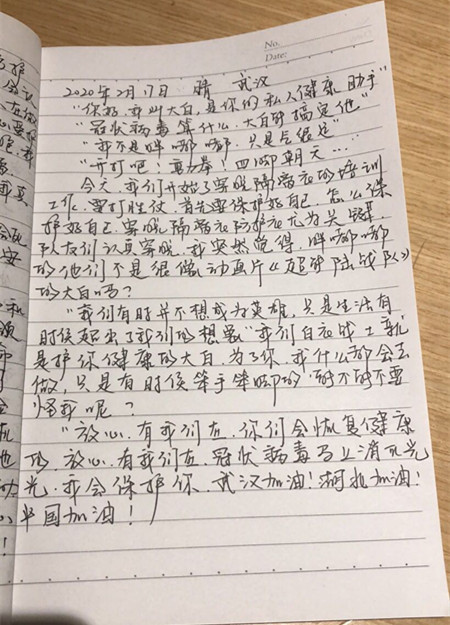 No.
Date:
2020年2月17日 晴 武汉
"你好,我叫大白,是你的私人健康助手"
"冠状病毒算什么,大白可搞定他"
"我不是胖嘟嘟,只是气很足"
"开打吧!赛力拳!四脚朝天…"
今天,我们开始了穿脱隔离衣的培训
工作,要打胜仗,首先要保护好自己,怎么保
护好自己,穿脱隔离衣防护衣尤为关键.
队友们认真穿脱,我突然觉得,胖嘟嘟
的他们不是很像动画片《超能陆战队》
的大白吗?
"我们有时并不想成为英雄,只是生活有
时候超出了我们的想象"我们白衣战士就
是护你健康的大白,为了你,我什么都会去
做,只是有时候笨手笨脚的,可不可不要
怪我呢?
"放心,有我们在,你们会恢复健康
的,放心,有我们在,冠状病毒马上消灭光
光,我会保护你,武汉加油!湖北加油!
中国加油!